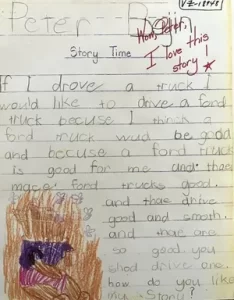 Peter
Wow, Peter,
I love this
story!
Story Time
If I drove a truck I
would like to drive a ford
truck becuse I think a
ford truck wud be good
and becuse a ford truck
is good for me and thae
mace ford trucks good.
and thae drive
good and smoth.
and thae are
so good you
shod drive one.
how do you like
my Story?